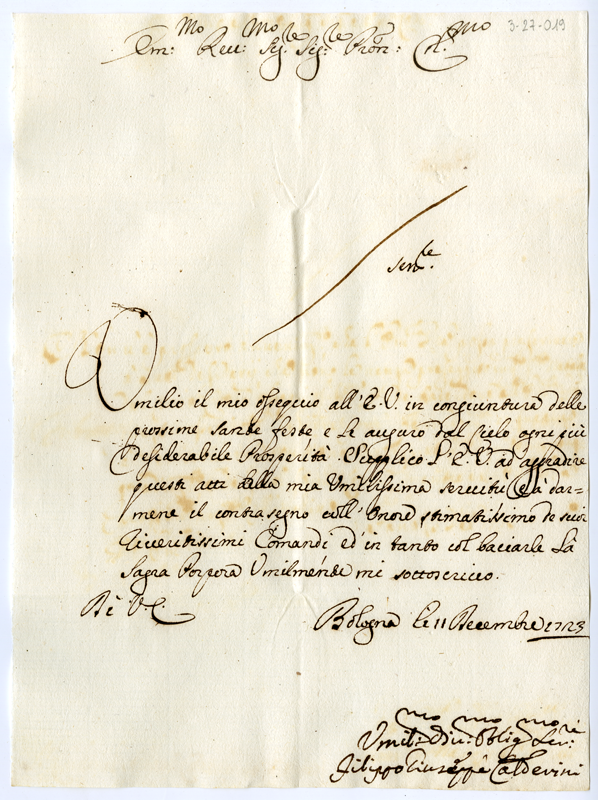 3-27-019
Em:mo Reu:mo Sig:re Sig:re Pron: Col:mo
Umilio il mio ossequio all'E.V. in congiuntura delle
prossime sante feste e Le auguro dal Cielo ogni più
desiderabile Prosperità. Supplico L'E.V. ad aggradire
questi atti della mia Umilissima servitù, e a dar-
mene il contrasegno coll'Onore stimatissimo de suoi
riveritissimi Comandi ed in tanto col baciarle La
Sagra Porpora Umilmente mi sottoscrivo.
Di V.E.
Bologna le 11 Decembre 1723
Umil:mo Diu:mo Oblig:mo Ser:re
Filippo Giuseppe Calderini